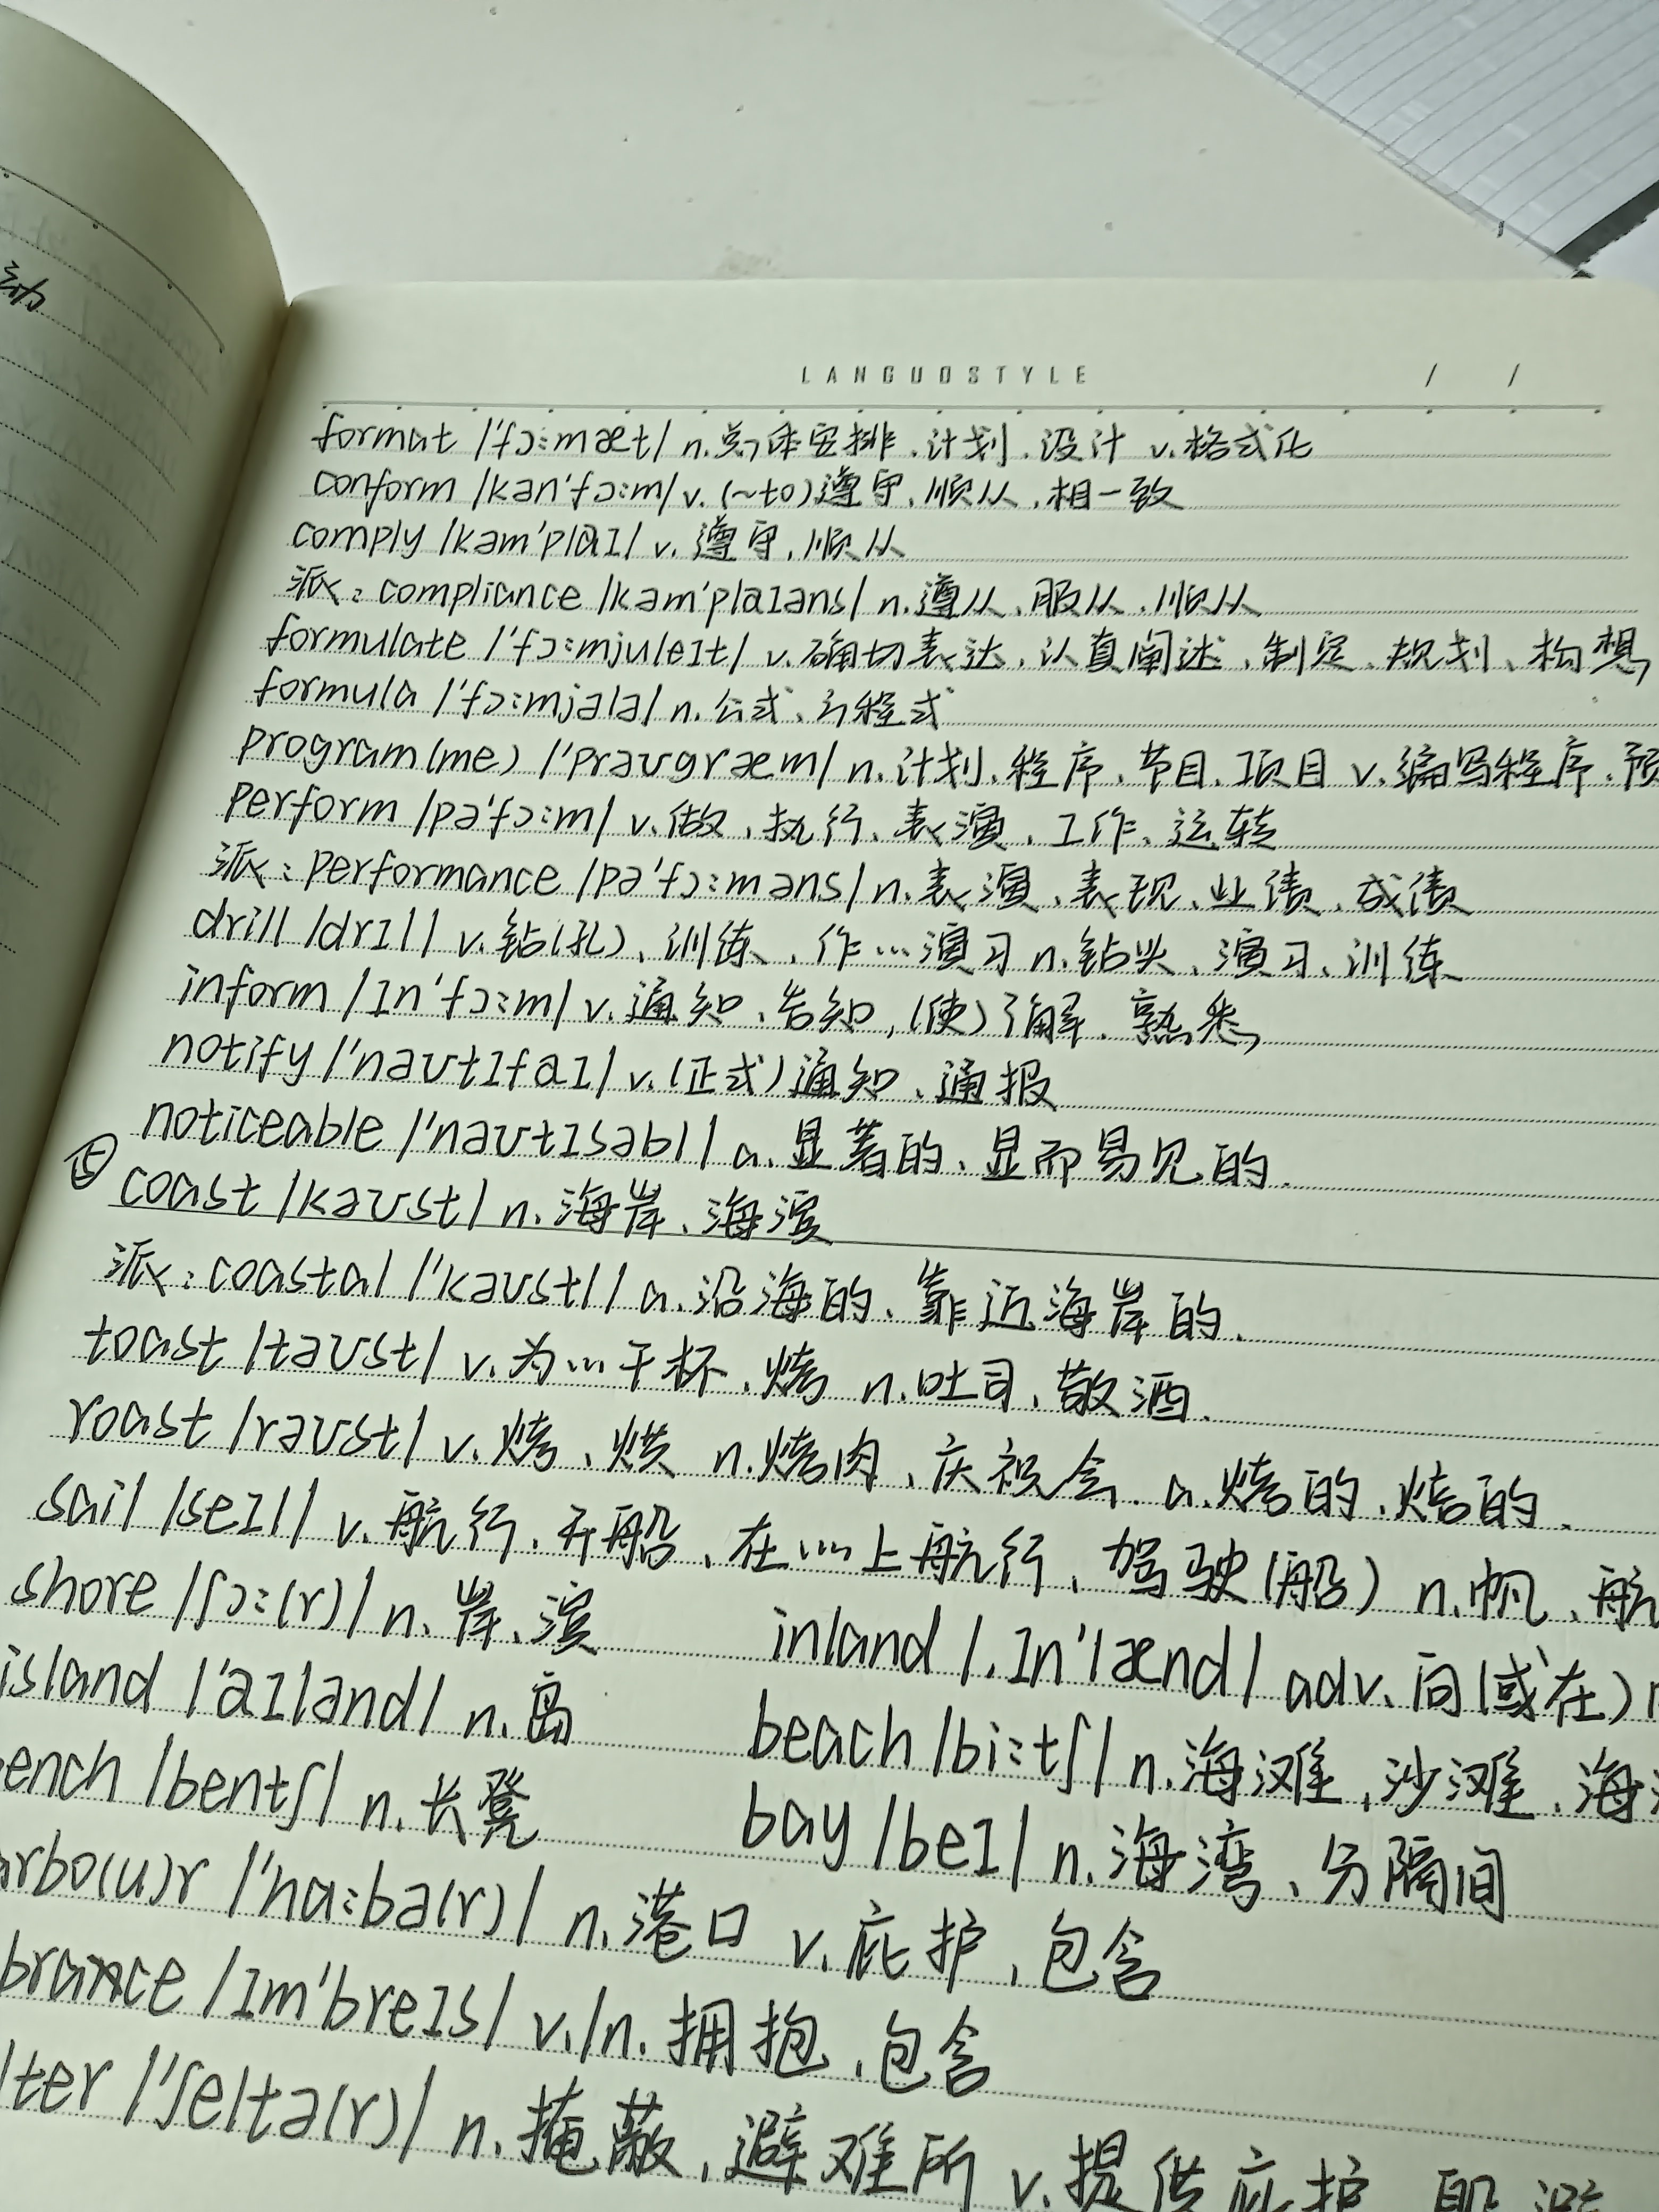 动
LANGUOSTYLE / /
format /'fɔ:mæt/ n.总体安排、计划、设计 v.格式化
conform /kən'fɔ:m/ v. (~to)遵守、顺从、相一致
comply /kəm'plaɪ/ v. 遵守、顺从
派: compliance /kəm'plaɪəns/ n.遵从、服从、顺从
formulate /'fɔ:mjuleɪt/ v.确切表达、认真阐述、制定、规划、构想
formula /'fɔ:mjələ/ n.公式、方程式
program(me) /'prəʊgræm/ n.计划、程序、节目、项目 v.编写程序、预
perform /pə'fɔ:m/ v.做、执行、表演、工作、运转
派: performance /pə'fɔ:məns/ n.表演、表现、业绩、成绩
drill /drɪl/ v.钻(孔)、训练、作…演习 n.钻头、演习、训练
inform /ɪn'fɔ:m/ v.通知、告知,(使)了解、熟悉
notify /'nəʊtɪfaɪ/ v.(正式)通知、通报
noticeable /'nəʊtɪsəbl/ a.显著的、显而易见的
coast /kəʊst/ n.海岸、海滨
派: coastal /'kəʊstl/ a.沿海的、靠近海岸的
toast /təʊst/ v.为…干杯、烤 n.吐司、敬酒
roast /rəʊst/ v.烤、烘 n.烤肉、庆祝会 a.烤的、烤的
sail /seɪl/ v.航行、开船、在…上航行、驾驶(船) n.帆、航
shore /ʃɔ:(r)/ n.岸、滨 inland /,ɪn'lænd/ adv.向(或在)
island /'aɪlənd/ n.岛 beach /bi:tʃ/ n.海滩,沙滩、海
ench /bentʃ/ n.长凳 bay /beɪ/ n.海湾、分隔间
rbo(u)r /'ha:bə(r)/ n.港口 v.庇护、包含
brance /ɪm'breɪs/ v./n.拥抱、包含
lter /'ʃeltə(r)/ n.掩蔽、避难所 v.提供庇护